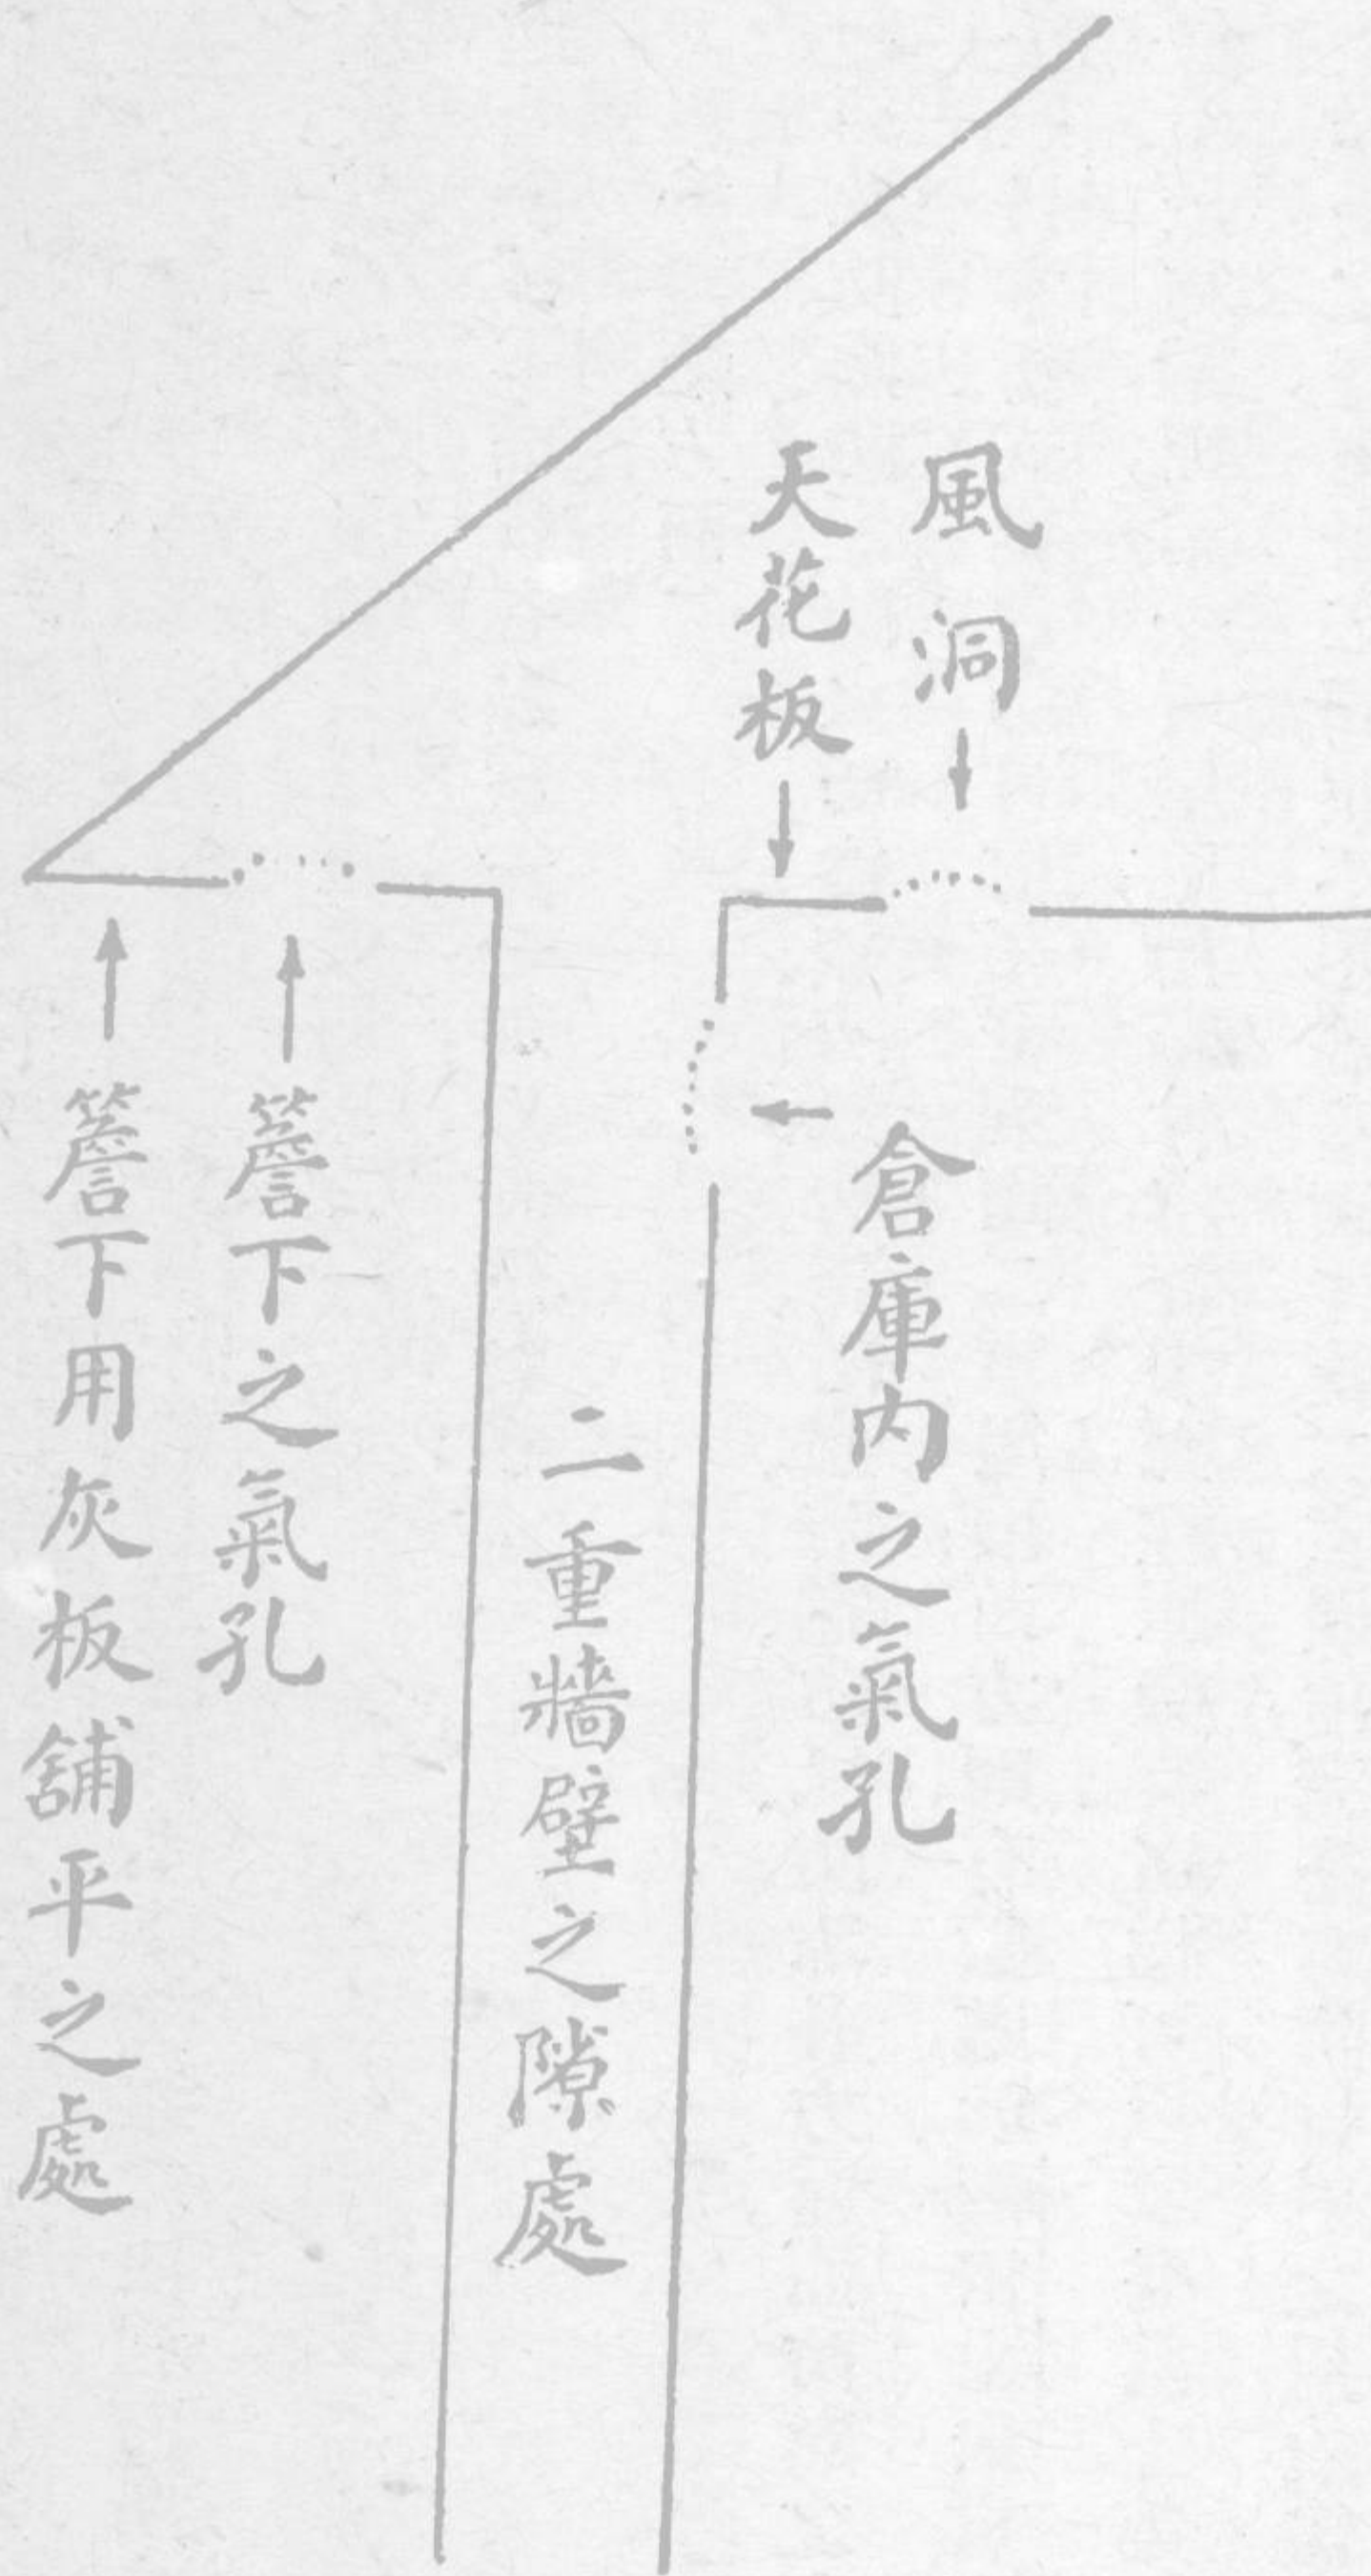 風洞
天花板
倉庫内之氣孔
二重牆壁之隙處
簷下之氣孔
簷下用灰板舖平之處